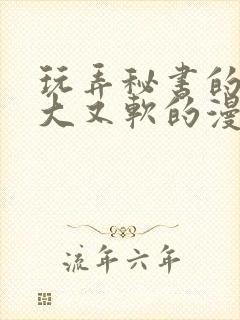 玩弄秘书的
大又软的漫
流年六年